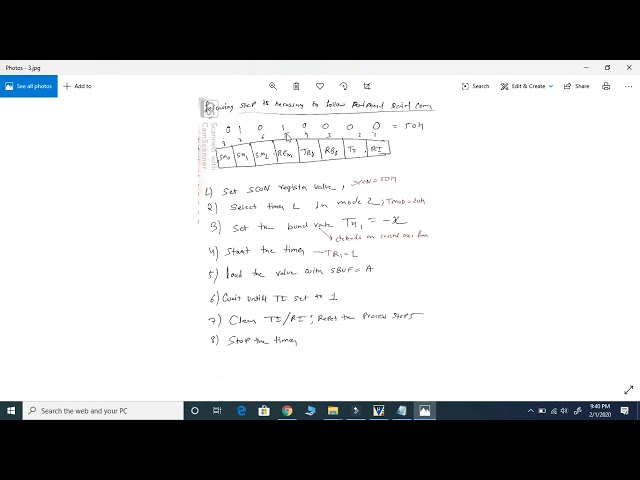 Photos - 3.jpg
See all photos
Add to
Search
Edit & Create
Share
Scanned with CamScanner
step is necessary to follow serial com
0 1 0 1 0 0 0 0 = 50H
8 7 6 5 4 3 2 1
SM0 SM1 SM2 REN TB8 RB8 TI RI
1) Set SCON register value, SCON=50H
2) Select timer 1 in mode 2, TMOD=20H
3) Set the baud rate TH1 = -x
depends on crystal osci
4) Start the timer — TR1=1
5) load the value with SBUF = A
6) wait untill TI set to 1
7) Clear TI/RI; Repet the Process step 5
8) Stop the timer
Search the web and your PC
9:40 PM
2/1/2020